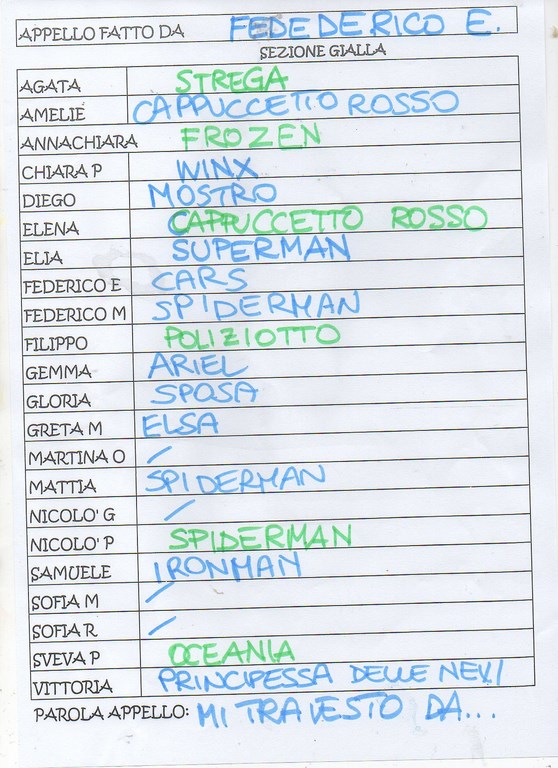 APPELLO FATTO DA FEDEDERICO E.
SEZIONE GIALLA
AGATA STREGA
AMELIE CAPPUCCETTO ROSSO
ANNACHIARA FROZEN
CHIARA P WINX
DIEGO MOSTRO
ELENA CAPPUCCETTO ROSSO
ELIA SUPERMAN
FEDERICO E CARS
FEDERICO M SPIDERMAN
FILIPPO POLIZIOTTO
GEMMA ARIEL
GLORIA SPOSA
GRETA M ELSA
MARTINA O /
MATTIA SPIDERMAN
NICOLO' G /
NICOLO' P SPIDERMAN
SAMUELE IRONMAN
SOFIA M /
SOFIA R /
SVEVA P OCEANIA
VITTORIA PRINCIPESSA DELLE NEVI
PAROLA APPELLO: MI TRAVESTO DA...